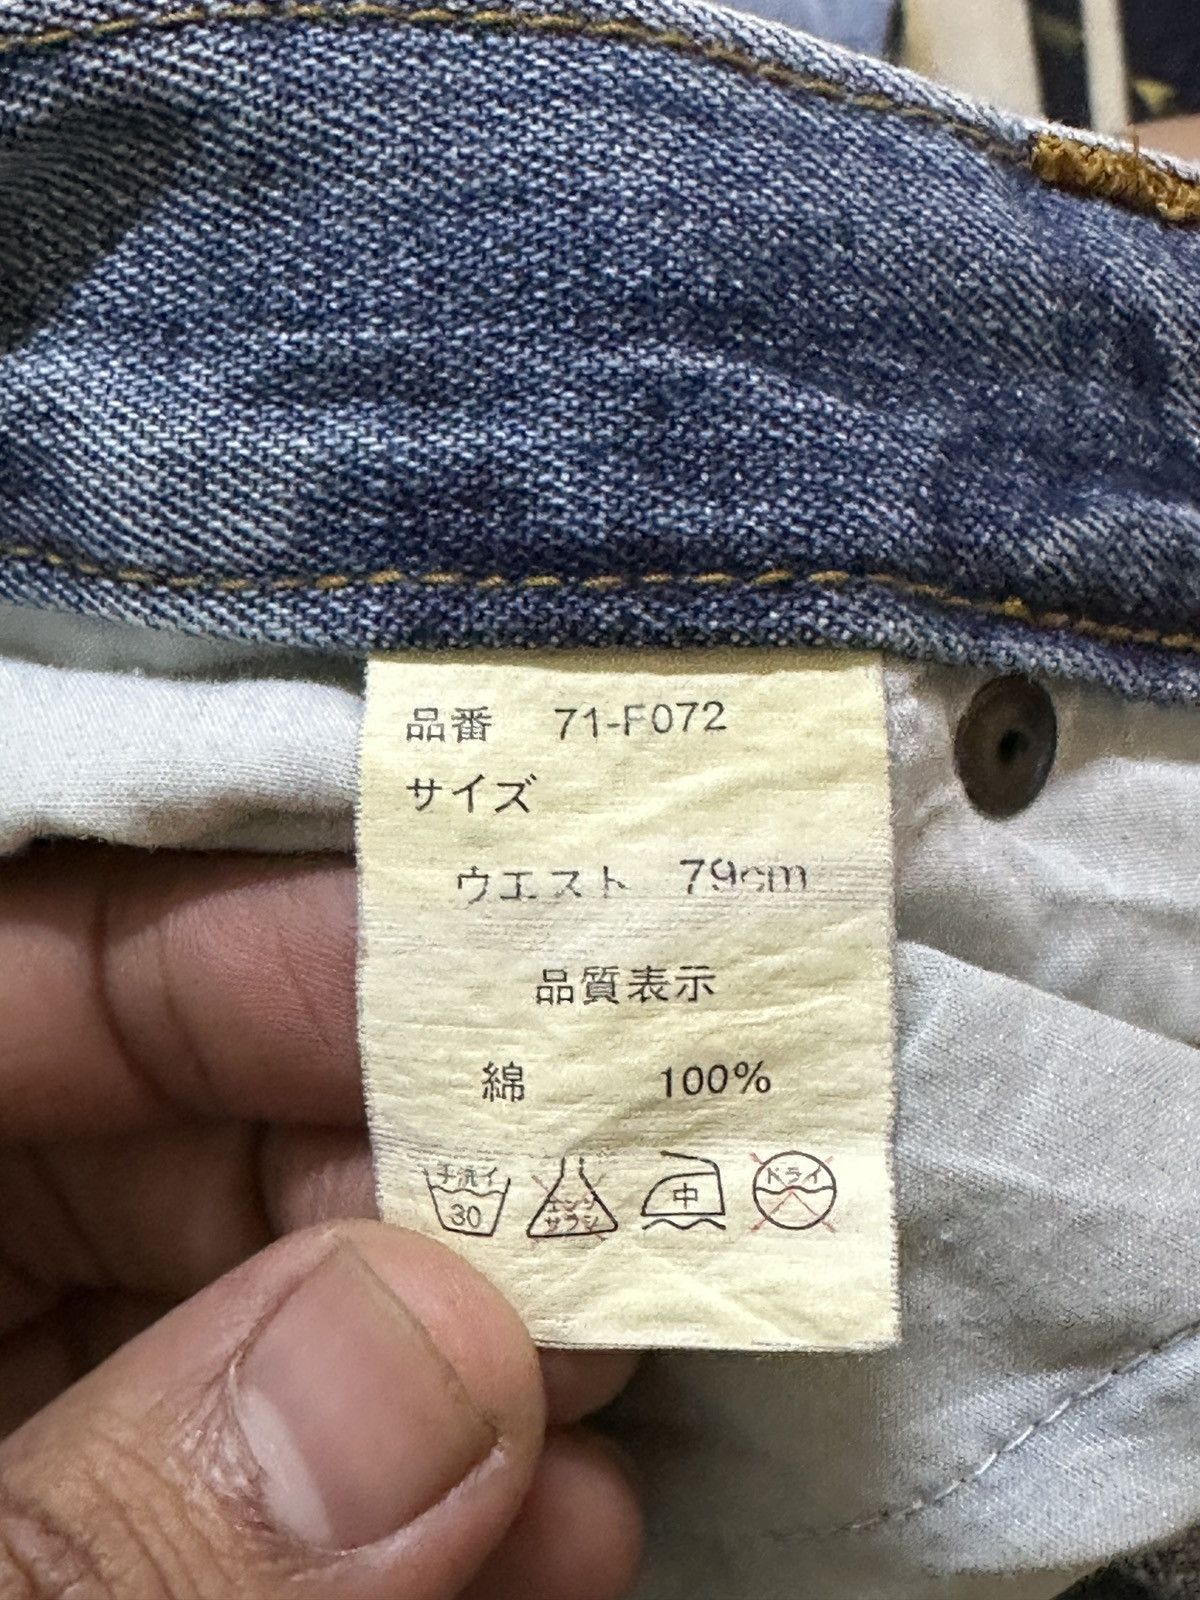 品番 71-F072
サイズ
ウエスト 79cm
品質表示
綿 100%
手洗イ エンソ 中 ドライ
30 サラシ